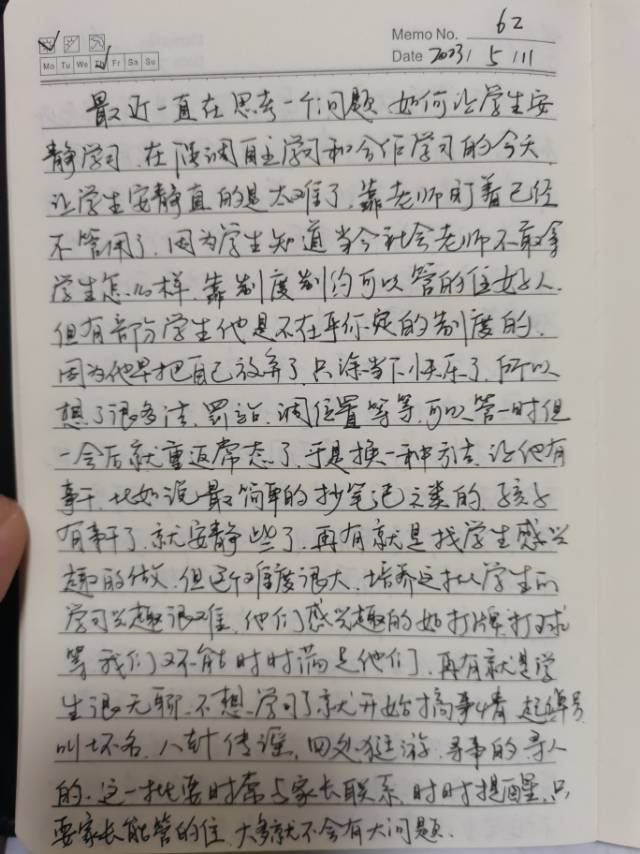 Memo No. 62
Mo Tu We Th Fr Sa Su
Date 2023 / 5 / 11
最近一直在思考一个问题 如何让学生安
静学习. 在强调自主学习和合作学习的今天
让学生安静真的是太难了. 靠老师盯着已经
不管用了. 因为学生知道当今社会老师不敢拿
学生怎么样. 靠制度制约可以管的住好人.
但有部分学生他是不在乎你定的制度的.
因为他早把自己放弃了. 只涂当下快乐了. 所以
想了很多法. 罚站. 调位置等等. 可以管一时但
一会后就重返常态了. 于是换一种方法. 让他有
事干. 比如说最简单的抄笔记之类的. 孩子
有事干了. 就安静些了. 再有就是找学生感兴
趣的做. 但这个难度很大. 培养这批学生的
学习兴趣很难. 他们感兴趣的如打牌. 打球
等 我们又不能时时满足他们. 再有就是学
生很无聊. 不想学习了就开始搞事情 起绰号
叫坏名. 八卦传谣. 四处狂游. 寻事的寻人
的. 这一批要时常与家长联系. 时时提醒. 只
要家长能管的住. 大多就不会有大问题.